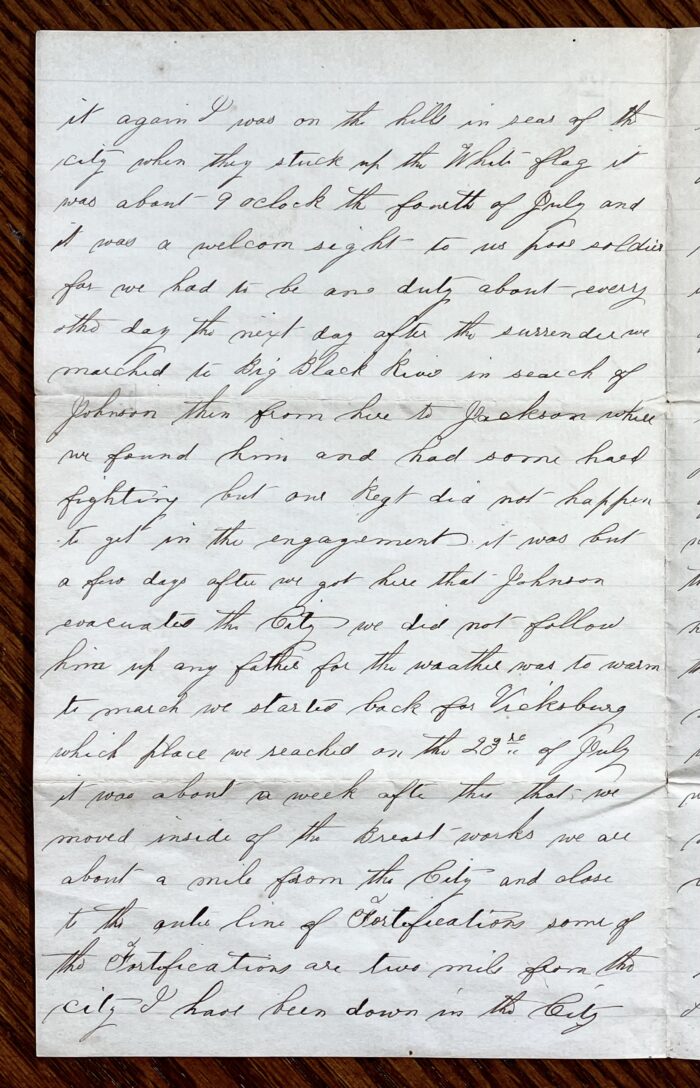 it again I was on the hills in rear of the
city when they stuck up the White flag it
was about 9 oclock the fourth of July and
it was a welcom sight to us poor soldier
for we had to be on duty about every
othe day the next day after the surrender we
marched to Big Black River in search of
Johnson then from here to Jackson where
we found him and had some hard
fighting but our Regt did not happen
to get in the engagement it was but
a few days after we got here that Johnson
evacuated the City we did not follow
him up any father for the weather was to warm
to march we started back for Vicksburg
which place we reached on the 23rd of July
it was about a week after this that we
moved inside of the Breast works we are
about a mile from the City and close
to the outer line of Fortifications some of
the Fortifications are two mile from the
city I have been down in the City